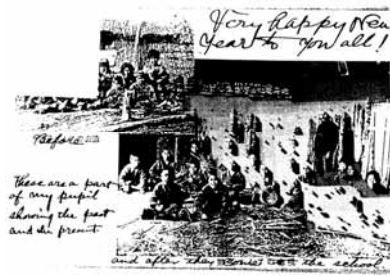 Very happy New
Year to you all!
Before
These are a part
of my pupil
showing the past
and the present
and after they come to the school